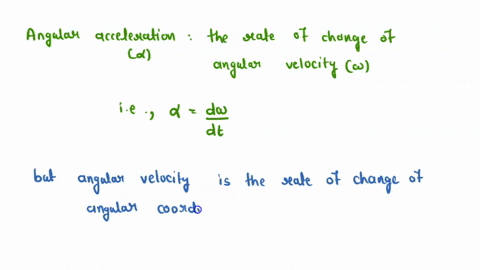 Angular acceleration : the rate of change of
(α) angular velocity (ω)
i.e., α = dω/dt
but angular velocity is the rate of change of
angular coord